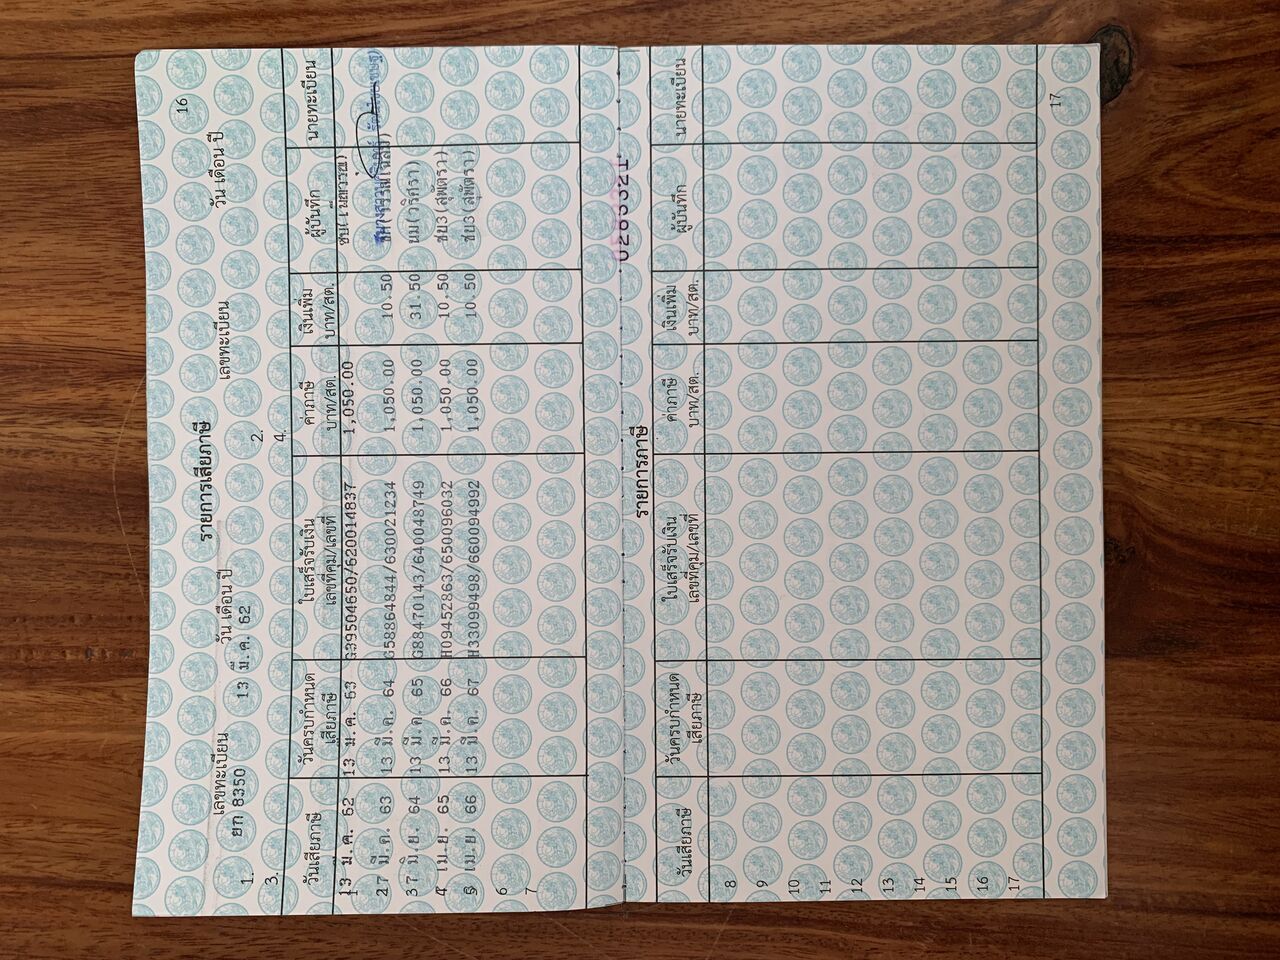 16
รายการเสียภาษี
เลขทะเบียน วัน เดือน ปี เลขทะเบียน วัน เดือน ปี
1. ยก 8350 13 มี.ค. 62 2.
3. 4.
วันเสียภาษี วันครบกำหนด เสียภาษี ใบเสร็จรับเงิน เลขที่คุม/เลขที่ ค่าภาษี บาท/สต. เงินเพิ่ม บาท/สต. ผู้บันทึก นายทะเบียน
13 มี.ค. 62 13 มี.ค. 63 G39504650/620014837 1,050.00
27 มี.ค. 63 13 มี.ค. 64 G58864844/630021234 1,050.00 10.50
7 มิ.ย. 64 13 มี.ค. 65 G88470143/640048749 1,050.00 31.50 นม(วริศรา)
4 เม.ย. 65 13 มี.ค. 66 H09452863/650096032 1,050.00 10.50 ชย3(สุพัตรา)
เม.ย. 66 13 มี.ค. 67 H33099498/660094992 1,050.00 10.50 ชย3(สุพัตรา)
6
7
รายการภาษี
วันเสียภาษี วันครบกำหนด เสียภาษี ใบเสร็จรับเงิน เลขที่คุม/เลขที่ ค่าภาษี บาท/สต. เงินเพิ่ม บาท/สต. ผู้บันทึก นายทะเบียน
8
9
10
11
12
13
14
15
16
17
17